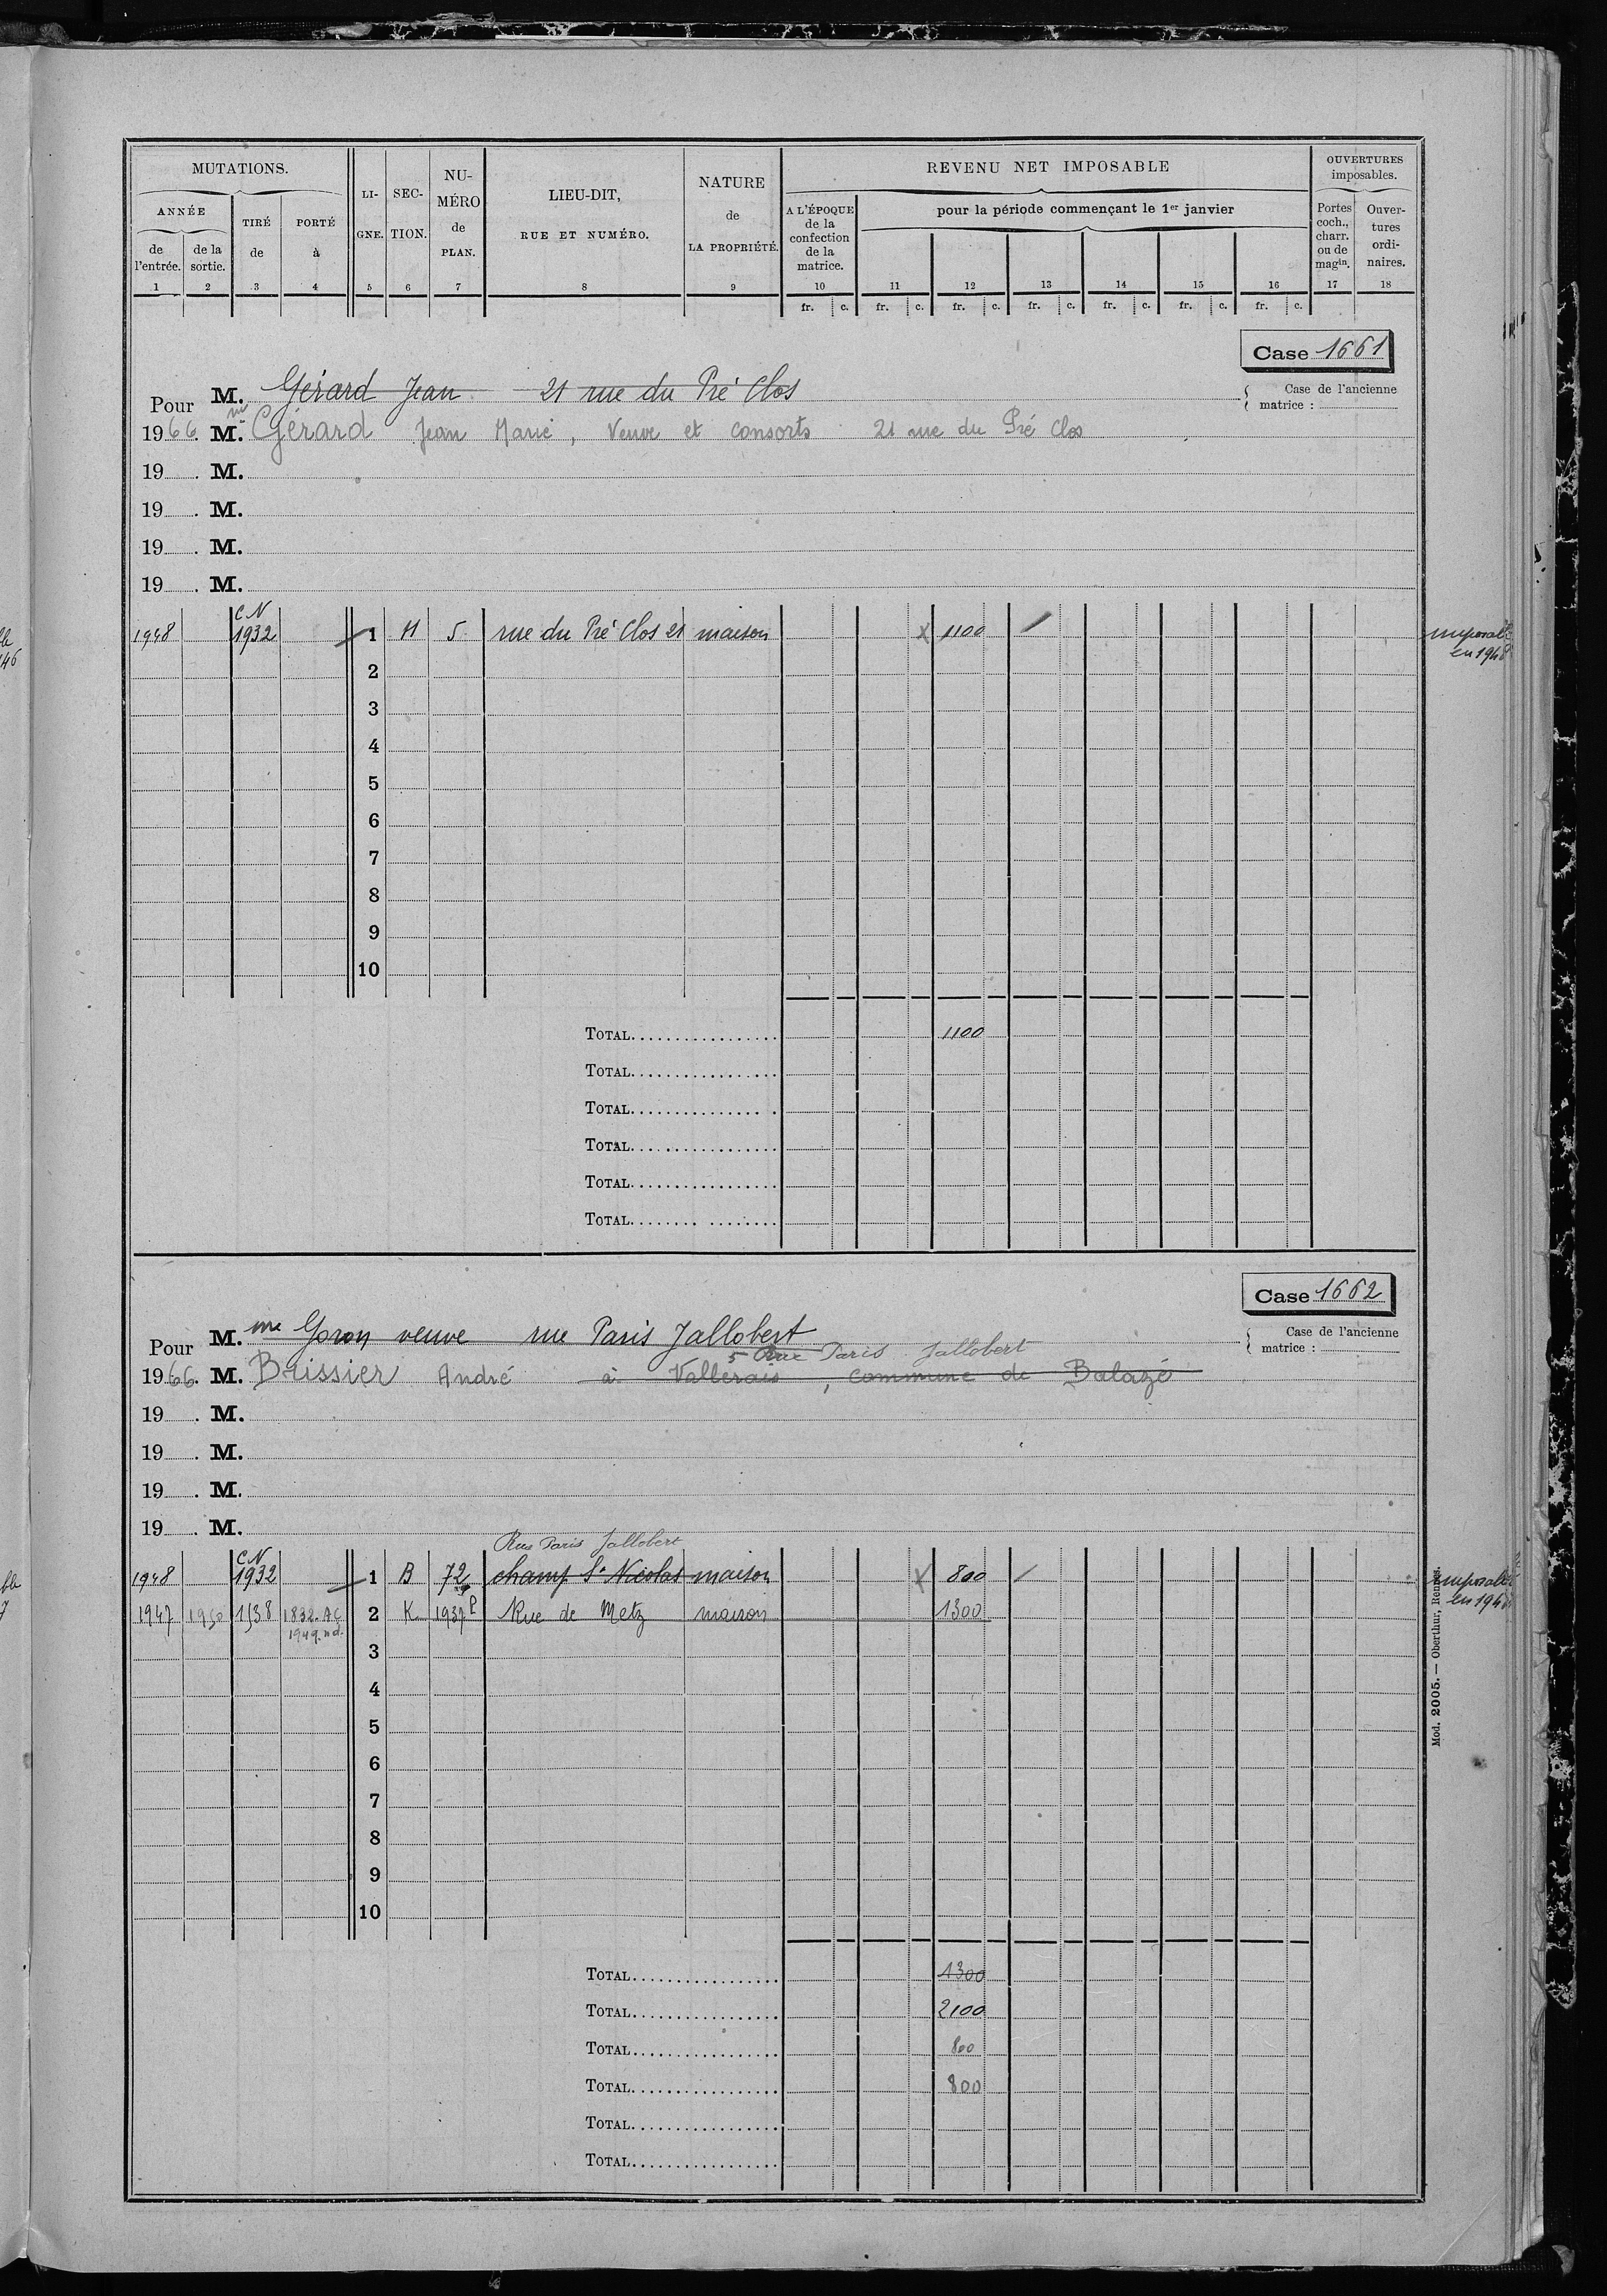 MUTATIONS.
ANNÉE
de l'entrée.
de la sortie.
TIRÉ de
PORTÉ à
LI-GNE.
SEC-TION.
NU-MÉRO de PLAN.
LIEU-DIT, RUE ET NUMÉRO.
NATURE de LA PROPRIÉTÉ.
REVENU NET IMPOSABLE
A L'ÉPOQUE de la confection de la matrice.
pour la période commençant le 1er janvier
OUVERTURES imposables.
Portes coch., charr. ou de magin.
Ouver-tures ordi-naires.
1 2 3 4 5 6 7 8 9 10 11 12 13 14 15 16 17 18
fr. c. fr. c. fr. c. fr. c. fr. c. fr. c. fr. c.
Case 1661
Pour M. Gérard Jean 21 rue du Pré Clos
Case de l'ancienne matrice :
1966. M. Gérard Jean Marie, Veuve et consorts 21 rue du Pré Clos
19 . M.
19 . M.
19 . M.
19 . M.
CN
1948 1932 1 H 5 rue du Pré Clos 21 maison X 1100
2
3
4
5
6
7
8
9
10
TOTAL 1100
TOTAL
TOTAL
TOTAL
TOTAL
TOTAL
Case 1662
Pour M. me Goron veuve rue Paris Jallobert
Case de l'ancienne matrice :
5 Rue Paris Jallobert
1966. M. Brissier André à Vallerais, commune de Balazé
19 . M.
19 . M.
19 . M.
19 . M.
Rue Paris Jallobert
CN
1948 1932 1 B 72 champ St Nicolas maison X 800
1947 1950 1538 1832. AC 2 K 1937 P Rue de Metz maison 1300
1949. nd.
3
4
5
6
7
8
9
10
TOTAL 1300
TOTAL 2100
TOTAL 800
TOTAL 800
TOTAL
TOTAL
Mod. 2005. — Oberthur, Rennes.